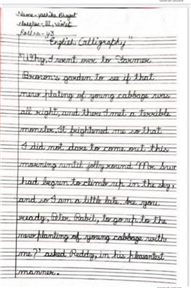 Name - 
Class - III, Violet
Roll no - 43
"English Calligraphy"
"Why, I went over to Farmer
Brown's garden to see if that
new planting of young cabbage was
all right, and there I met a terrible
monster. It frightened me so that
I did not dare to come out this
morning until jolly round Mr. Sun
had begun to climb up in the sky,
and so I am a little late. Are you
ready, Peter Rabbit, to go up to the
new planting of young cabbage with
me?" asked Reddy, in his pleasantest
manner.